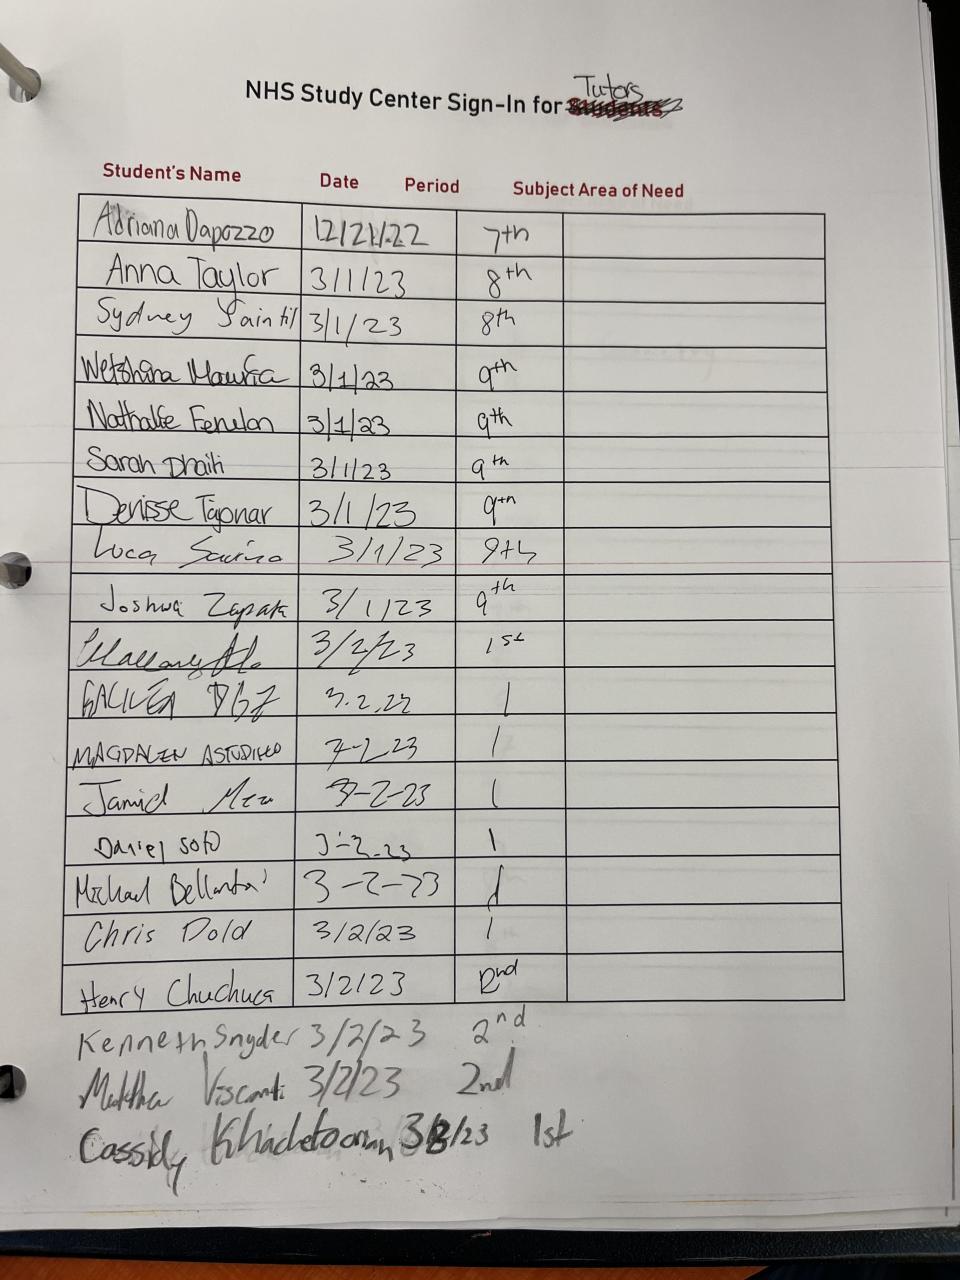 Tutors
NHS Study Center Sign-In for Students
Student's Name Date Period Subject Area of Need
Adriana Dapozzo 12/21/22 7th
Anna Taylor 3/1/23 8th
Sydney Saintil 3/1/23 8th
3/1/23 9th
Nathalie Fenelon 3/1/23 9th
Sarah Dhaiti 3/1/23 9th
Denisse 3/1/23 9th
Luca Savino 3/1/23 9th
Joshua Zapata 3/1/23 9th
3/2/23 1st
1
MAGDALEN ASTUDILLO 1
Jamid 3-2-23 1
Daniel Soto 3-2-23 1
Michael 3-2-23 1
Chris Dold 3/2/23 1
Henry Chuchuca 3/2/23 2nd
Kenneth Snyder 3/2/23 2nd
Visconti 3/2/23 2nd
Cassidy 1st